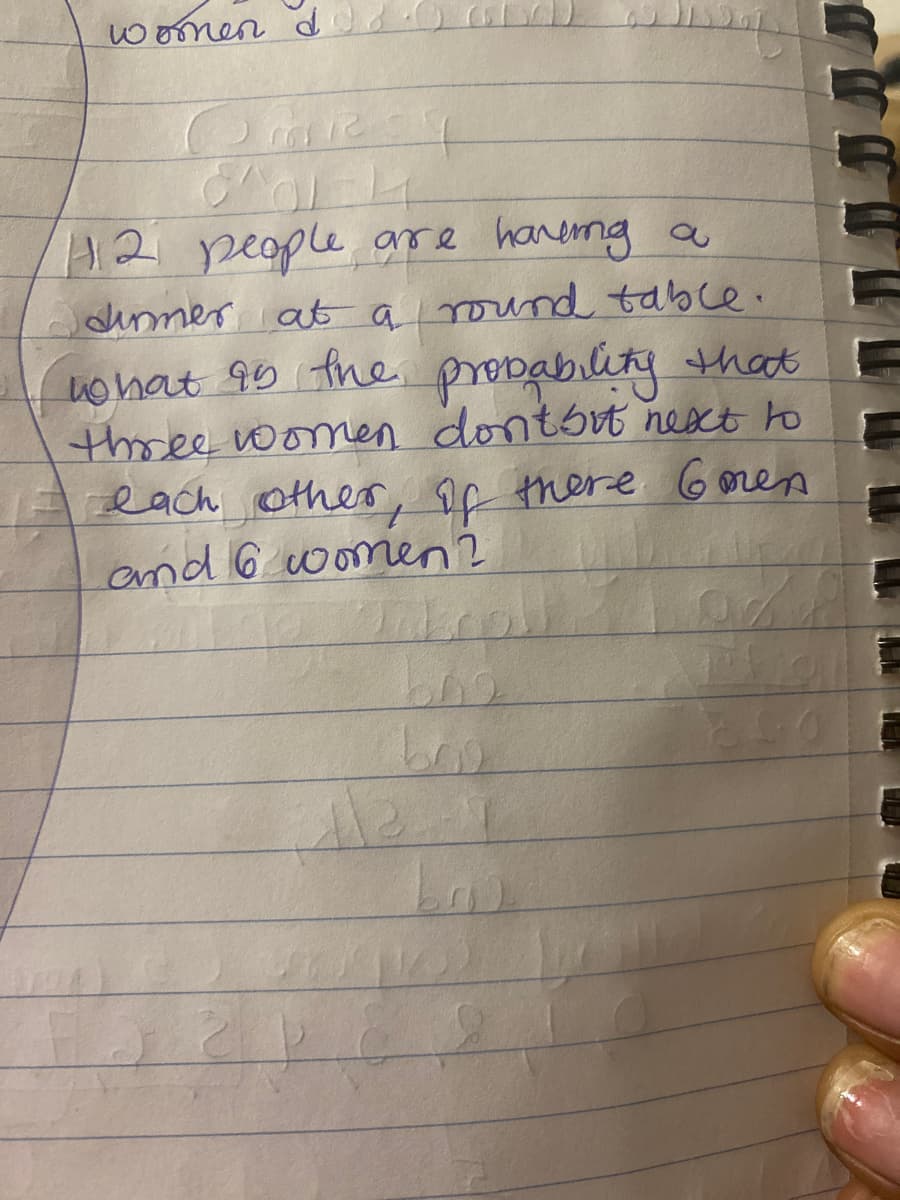 women d
12 people are having a
dinner at a round table.
what is the probability that
three women dont sit next to
each other, if there 6 men
and 6 women?